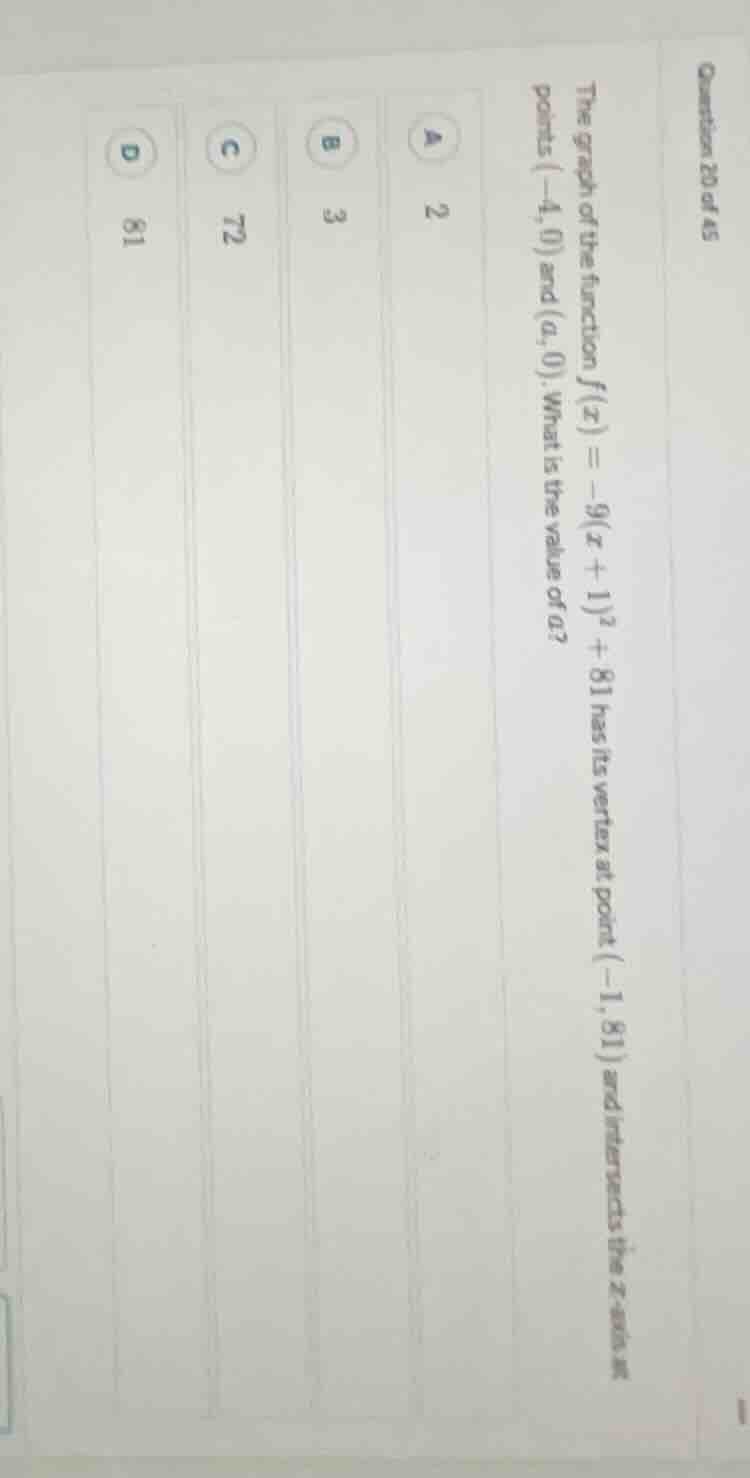 Question 20 of 45
The graph of the function f(x) = −9(x + 1)² + 81 has its vertex at point (−1, 81) and intersects the x-axis at
points (−4, 0) and (a, 0). What is the value of a?
A 2
B 3
C 72
D 81